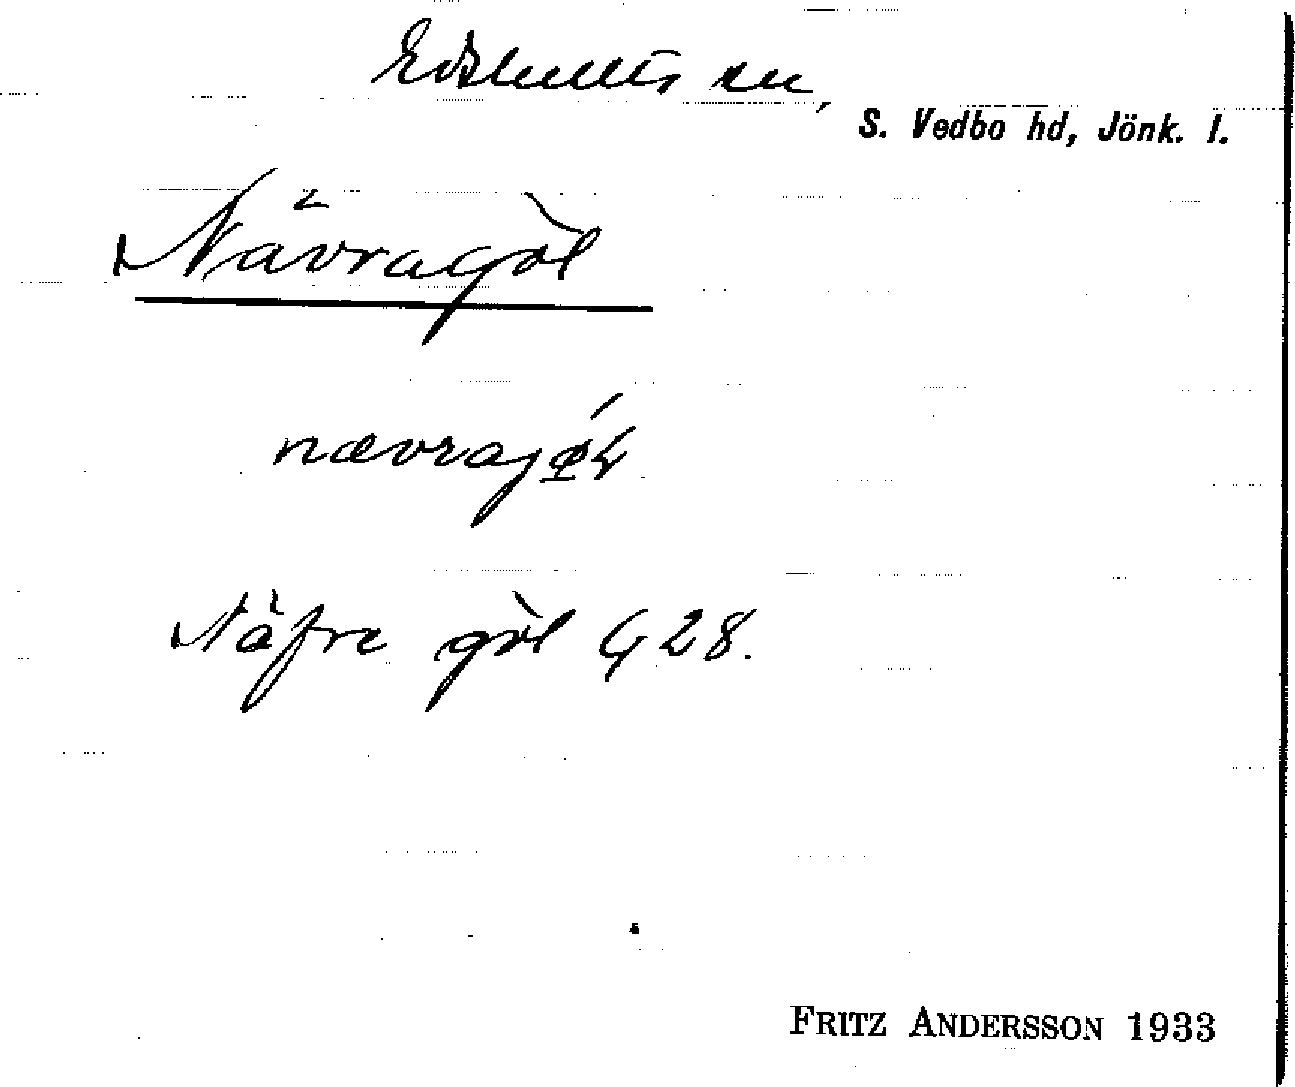 Edshults sn,
S. Vedbo hd, Jönk. l.
Nävragöl
nævrajøʹɫ
Näfre göl G 28.
FRITZ ANDERSSON 1933